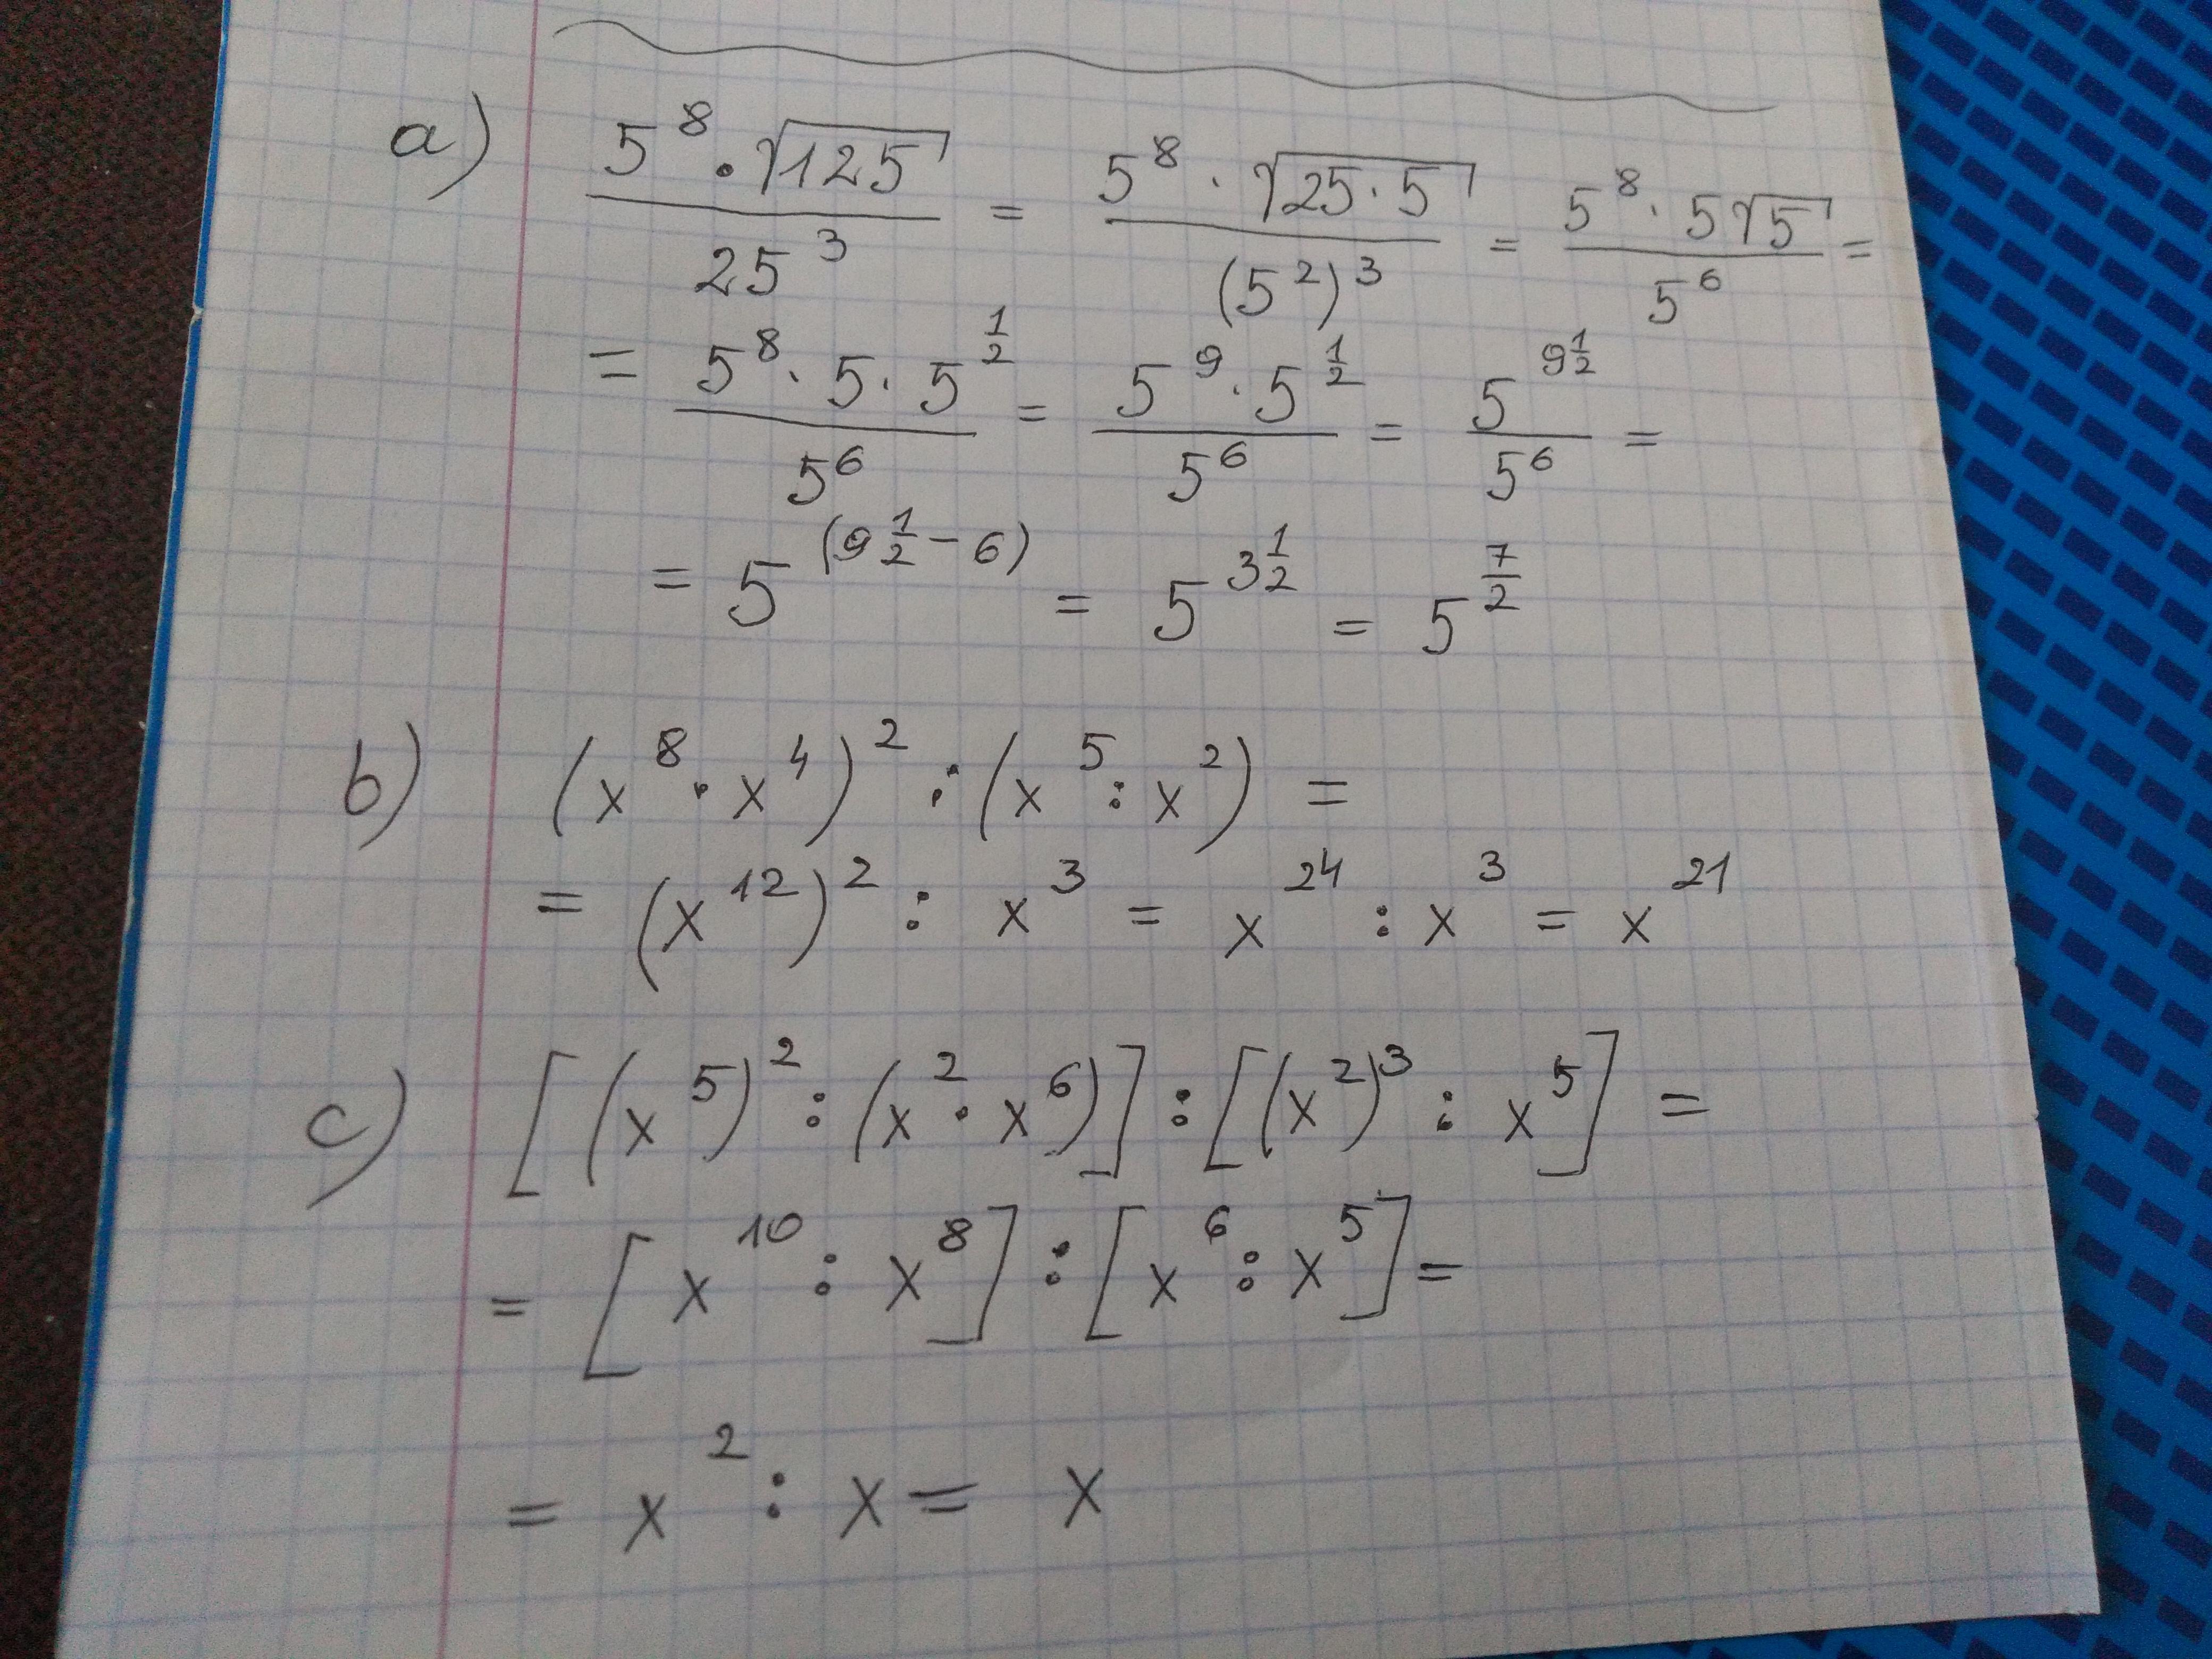 a) \frac{5^8 \cdot \sqrt{125}}{25^3} = \frac{5^8 \cdot \sqrt{25 \cdot 5}}{(5^2)^3} = \frac{5^8 \cdot 5\sqrt{5}}{5^6} =
= \frac{5^8 \cdot 5 \cdot 5^{\frac{1}{2}}}{5^6} = \frac{5^9 \cdot 5^{\frac{1}{2}}}{5^6} = \frac{5^{9\frac{1}{2}}}{5^6} =
= 5^{(9\frac{1}{2} - 6)} = 5^{3\frac{1}{2}} = 5^{\frac{7}{2}}
b) (x^8 \cdot x^4)^2 : (x^5 : x^2) =
= (x^{12})^2 : x^3 = x^{24} : x^3 = x^{21}
c) [(x^5)^2 : (x^2 \cdot x^6)] : [(x^2)^3 : x^5] =
= [x^{10} : x^8] : [x^6 : x^5] =
= x^2 : x = x